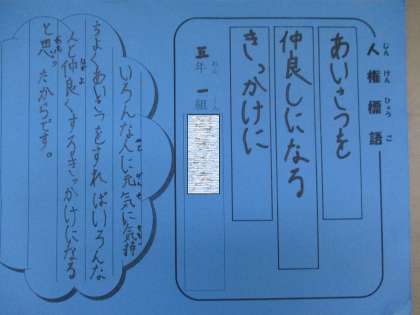 人権標語
じんけんひょうご
あいさつを
仲良しになる
きっかけに
五年一組
ねんくみ
いろんな人に元気に気持
ちよくあいさつをすればいろんな
人と仲良くするきっかけになる
と思ったからです。